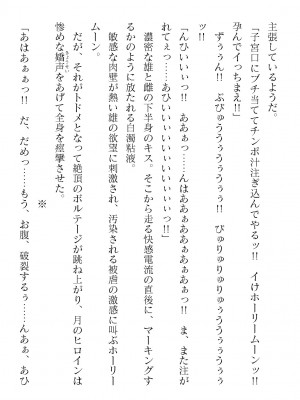 主張しているようだ。
「子宮口にブチ当ててチンポ汁注ぎ込んでやるッ!! イけホーリームーンッ!!
孕んでイっちまえ!!」
ずぅぅん!! ぶびゅううううぅぅぅぅ!! びゅりゅりゅりゅぅぅうぅぅぅ
ッ!!
「んひぃぃぃっ!! ああぁっ……んはあぁあぁあぁぁあぁっ!! ま、また注が
れてぇっ……あひぃぃぃぃぃぃぃぃっ!!」
濃密な雄と雌の下半身のキス。そこから走る快感電流の直後に、マーキングす
るかのように放たれる白濁粘液。
敏感な肉壁が熱い雄の欲望に刺激され、汚染される被虐の激感に叫ぶホーリー
ムーン。
だが、それがトドメとなって絶頂のボルテージが跳ね上がり、月のヒロインは
惨めな嬌声をあげて全身を痙攣させた。
※
「あはぁぁぁっ!! だ、だめっ……もう、お腹、破裂するぅ……んあぁ、あひ